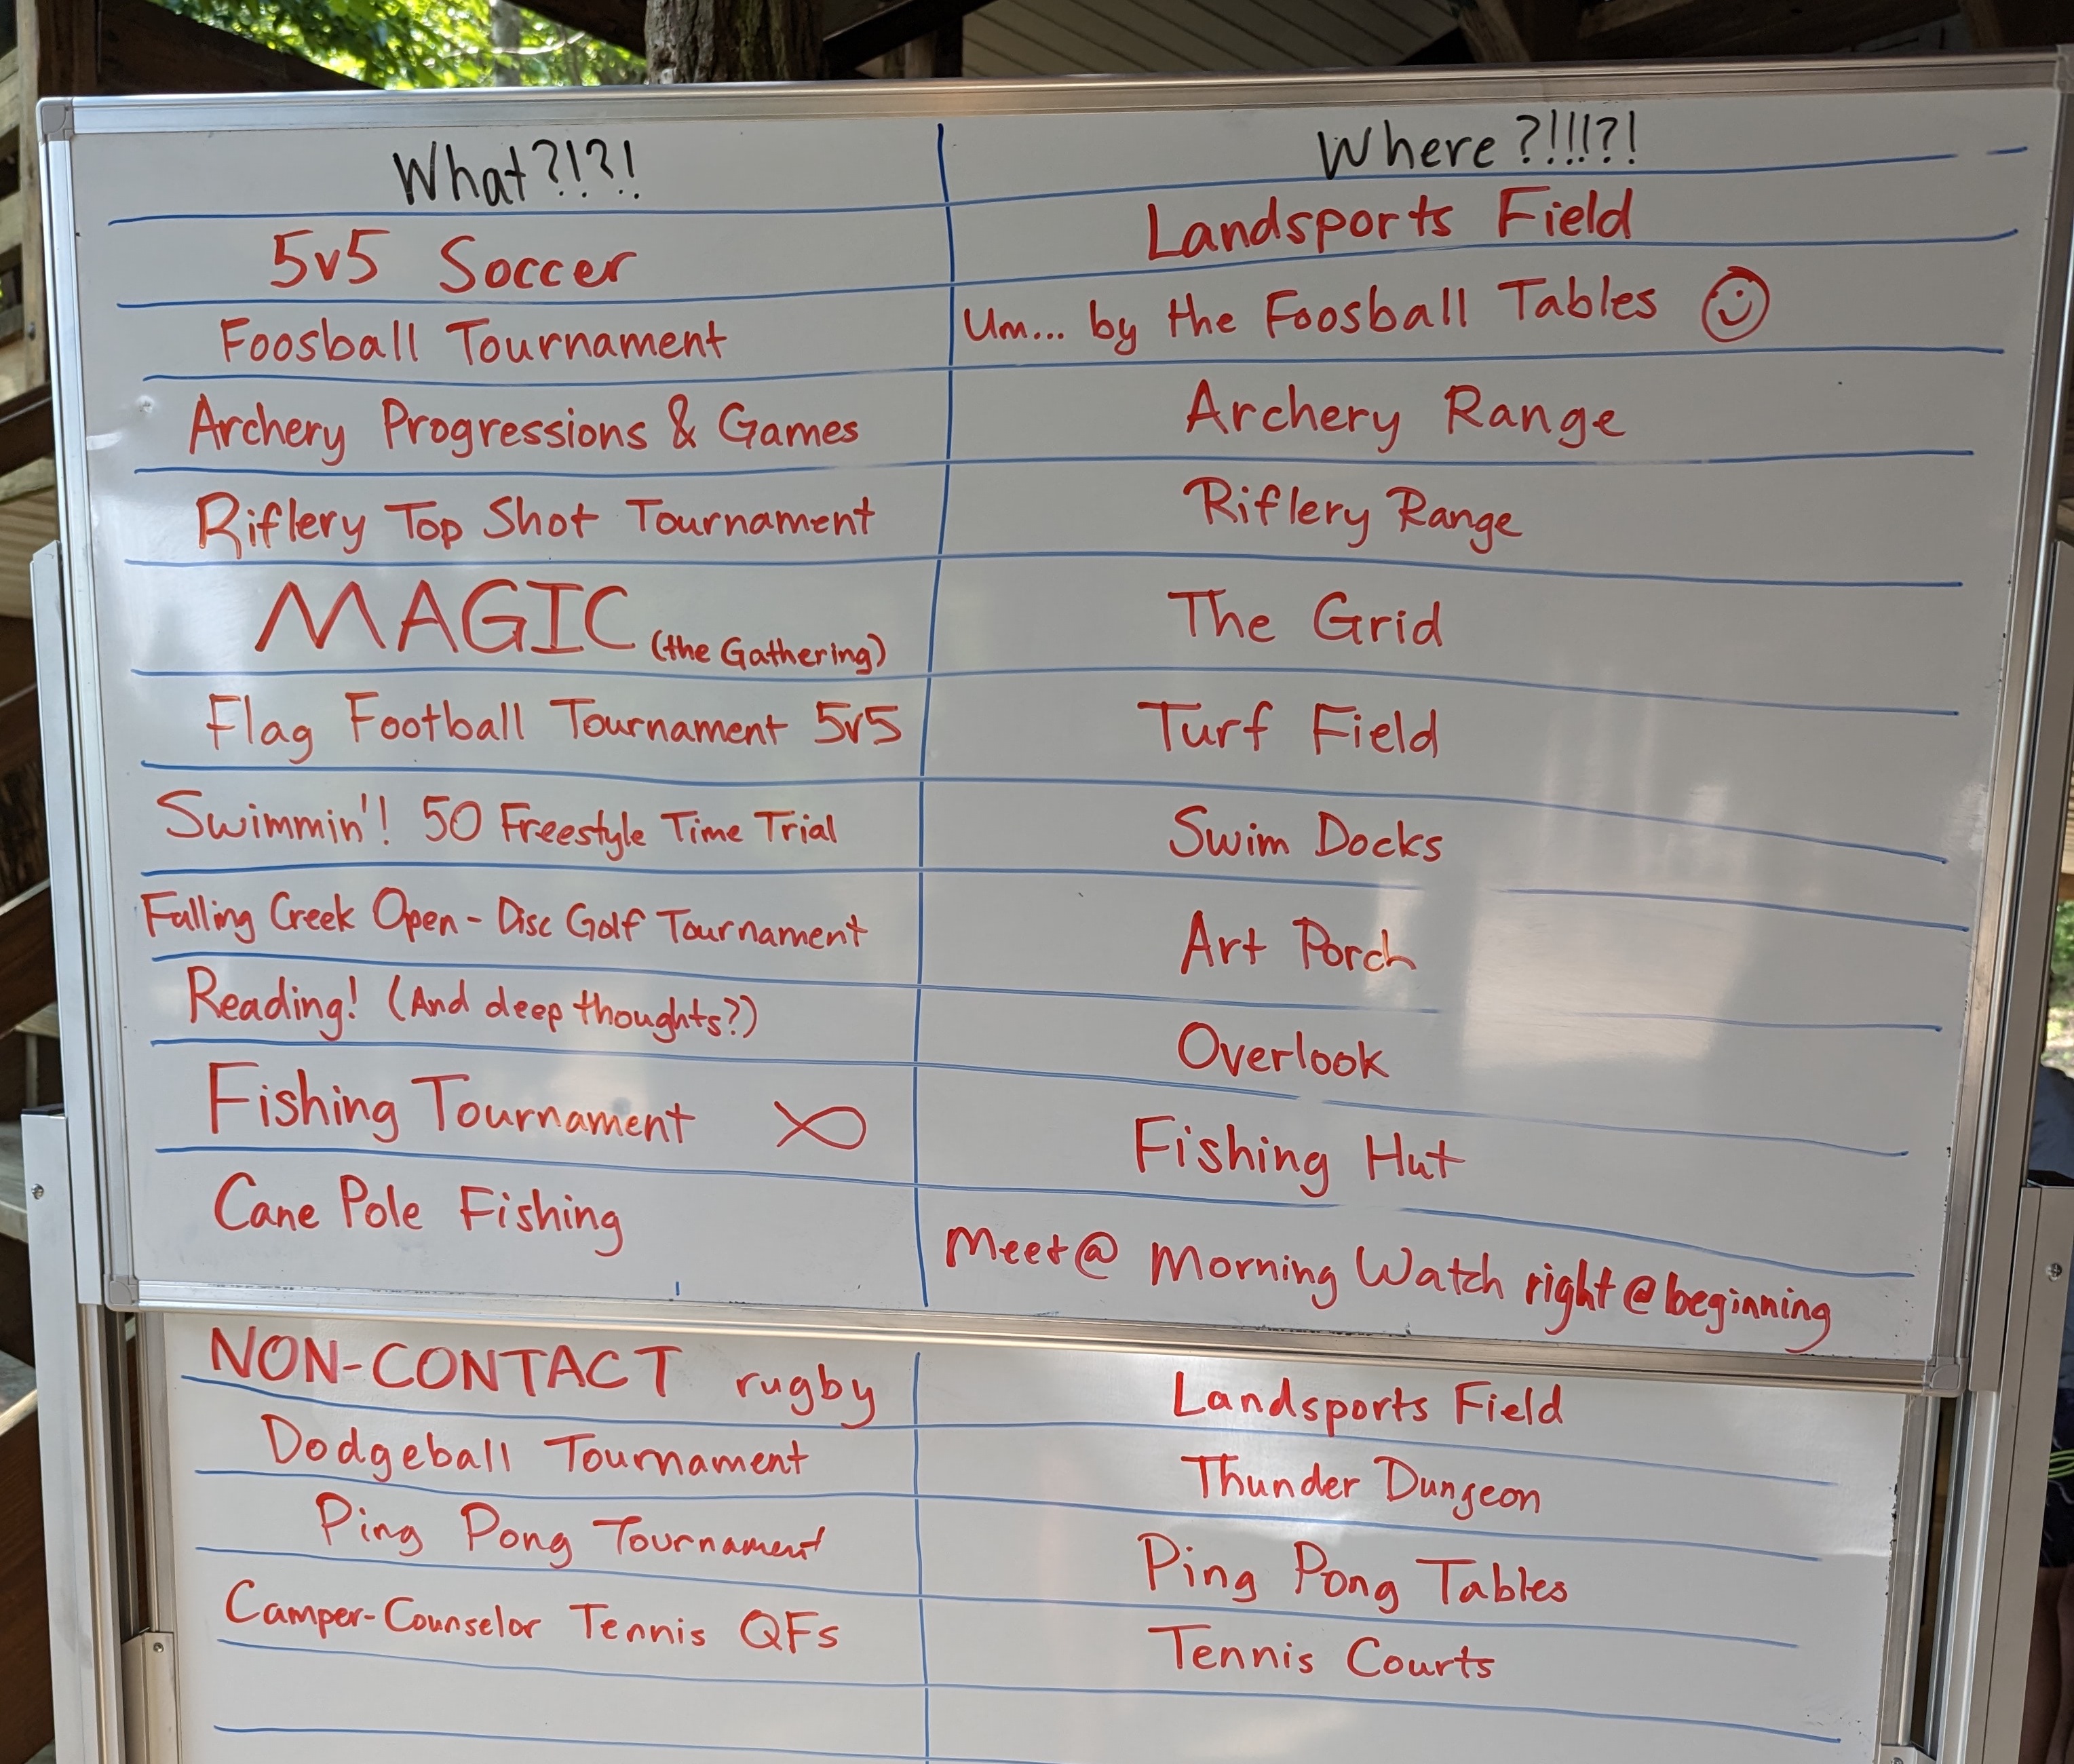 What?!?! Where?!!!?!
5v5 Soccer Landsports Field
Foosball Tournament Um... by the Foosball Tables
Archery Progressions & Games Archery Range
Riflery Top Shot Tournament Riflery Range
MAGIC (the Gathering) The Grid
Flag Football Tournament 5v5 Turf Field
Swimmin'! 50 Freestyle Time Trial Swim Docks
Falling Creek Open - Disc Golf Tournament Art Porch
Reading! (And deep thoughts?) Overlook
Fishing Tournament Fishing Hut
Cane Pole Fishing Meet @ Morning Watch right @ beginning
NON-CONTACT rugby Landsports Field
Dodgeball Tournament Thunder Dungeon
Ping Pong Tournament Ping Pong Tables
Camper-Counselor Tennis QFs Tennis Courts